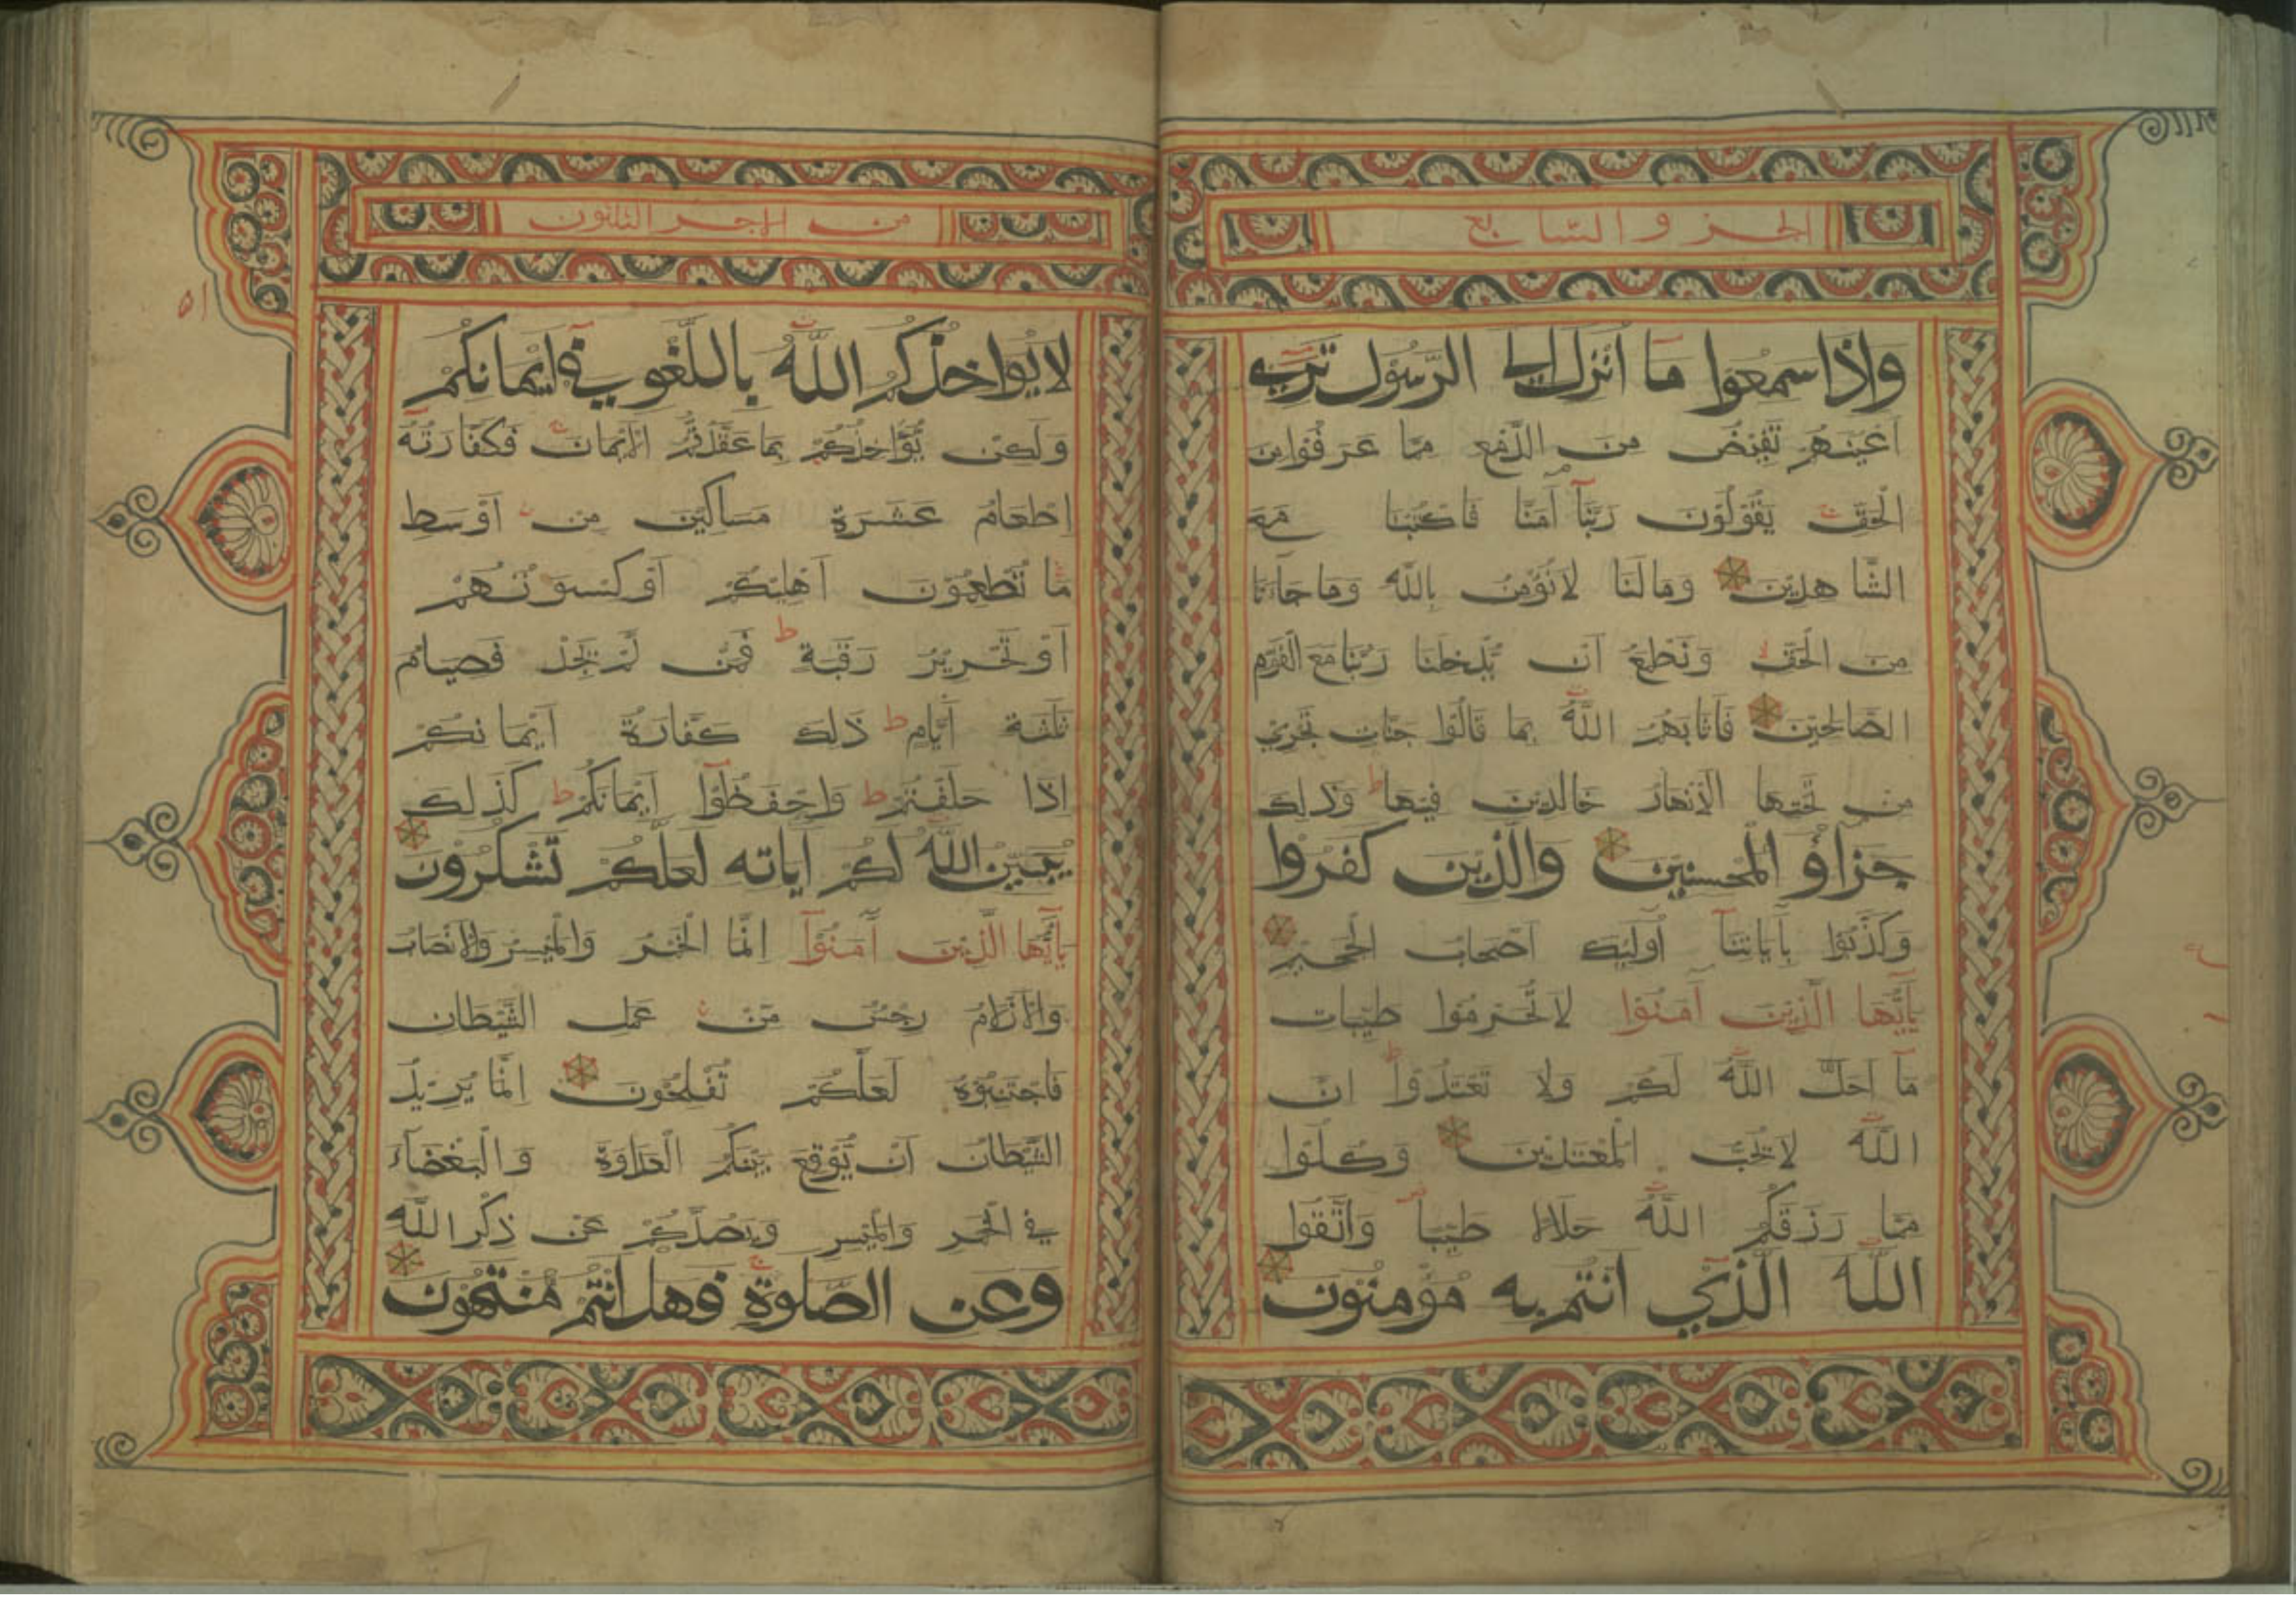 الجزو السابع
وَإِذَا سَمِعُوا مَا أُنْزِلَ إِلَى الرَّسُولِ تَرَى
أَعْيُنَهُمْ تَفِيضُ مِنَ الدَّمْعِ مِمَّا عَرَفُوا مِنَ
الْحَقِّ يَقُولُونَ رَبَّنَا آمَنَّا فَاكْتُبْنَا مَعَ
الشَّاهِدِينَ وَمَا لَنَا لَا نُؤْمِنُ بِاللَّهِ وَمَا جَاءَنَا
مِنَ الْحَقِّ وَنَطْمَعُ أَنْ يُدْخِلَنَا رَبُّنَا مَعَ الْقَوْمِ
الصَّالِحِينَ فَأَثَابَهُمُ اللَّهُ بِمَا قَالُوا جَنَّاتٍ تَجْرِي
مِنْ تَحْتِهَا الْأَنْهَارُ خَالِدِينَ فِيهَا ط وَذَلِكَ
جَزَاؤُ الْمُحْسِنِينَ وَالَّذِينَ كَفَرُوا
وَكَذَّبُوا بِآيَاتِنَا أُولَئِكَ أَصْحَابُ الْجَحِيمِ
يَأَيُّهَا الَّذِينَ آمَنُوا لَا تُحَرِّمُوا طَيِّبَاتِ
مَا أَحَلَّ اللَّهُ لَكُمْ وَلَا تَعْتَدُوا ط إِنَّ
اللَّهَ لَا يُحِبُّ الْمُعْتَدِينَ وَكُلُوا
مِمَّا رَزَقَكُمُ اللَّهُ حَلَالًا طَيِّبًا وَاتَّقُوا
اللَّهَ الَّذِي أَنْتُمْ بِهِ مُؤْمِنُونَ
من اجز الثلثون
٥١
لَا يُؤَاخِذُكُمُ اللَّهُ بِاللَّغْوِ فِي أَيْمَانِكُمْ
وَلَكِنْ يُؤَاخِذُكُمْ بِمَا عَقَّدْتُمُ الْأَيْمَانَ فَكَفَّارَتُهُ
إِطْعَامُ عَشَرَةِ مَسَاكِينَ مِنْ أَوْسَطِ
مَا تُطْعِمُونَ أَهْلِيكُمْ أَوْ كِسْوَتُهُمْ
أَوْ تَحْرِيرُ رَقَبَةٍ ط فَمَنْ لَمْ يَجِدْ فَصِيَامُ
ثَلَثَةِ أَيَّامٍ ط ذَلِكَ كَفَّارَةُ أَيْمَانِكُمْ
إِذَا حَلَفْتُمْ ط وَاحْفَظُوا أَيْمَانَكُمْ ط كَذَلِكَ
يُبَيِّنُ اللَّهُ لَكُمْ آيَاتِهِ لَعَلَّكُمْ تَشْكُرُونَ
يَأَيُّهَا الَّذِينَ آمَنُوا إِنَّمَا الْخَمْرُ وَالْمَيْسِرُ وَالْأَنْصَابُ
وَالْأَزْلَامُ رِجْسٌ مِّنْ عَمَلِ الشَّيْطَانِ
فَاجْتَنِبُوهُ لَعَلَّكُمْ تُفْلِحُونَ إِنَّمَا يُرِيدُ
الشَّيْطَانُ أَنْ يُوقِعَ بَيْنَكُمُ الْعَدَاوَةَ وَالْبَغْضَاءَ
فِي الْخَمْرِ وَالْمَيْسِرِ وَيَصُدَّكُمْ عَنْ ذِكْرِ اللَّهِ
وَعَنِ الصَّلَوةِ فَهَلْ أَنْتُمْ مُنْتَهُونَ